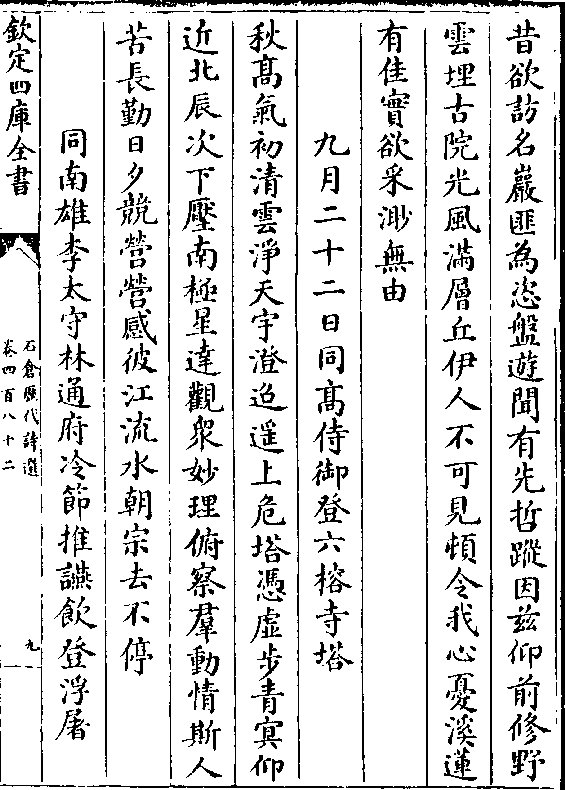 昔欲訪名巖匪為恣盤遊聞有先哲蹤因茲仰前修野
雲埋古院光風滿層丘伊人不可見頓令我心憂溪蓮
有佳實欲采渺無由
九月二十二日同髙侍御登六榕寺塔
秋髙氣初清雲淨天宇澄迢遥上危塔憑虛步青㝠仰
近北辰次下壓南極星達觀衆妙理俯察羣動情斯人
苦長勤日夕競營營感彼江流水朝宗去不停
同南雄李太守林通府冷節推讌飲登浮屠
欽定四庫全書
石倉歷代詩選
卷四百八十二
九